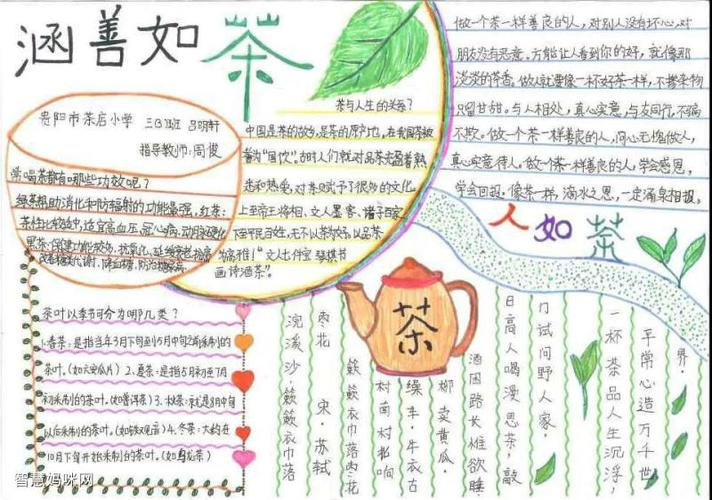 涵善如茶
贵阳市茶店小学 三(3)班 吕明轩
指导教师:周俊
常喝茶都有哪些功效呢?
绿茶:帮助消化和防辐射的功能最强,红茶:
茶性比较适中,适宜高血压、冠心病、动脉硬化
黑茶:保健功能较多,抗氧化,延缓衰老
改善糖类代谢,降血糖,防治糖尿病
茶与人生的关系?
中国是茶的故乡,是茶的原产地,在我国茶被
誉为“国饮”,古时人们就对品茶充盈着熟
悉和热爱,对茶赋予了很多的文化
上至帝王将相、文人墨客、诸子百家
下至平民百姓,无不以茶为好,以品茶
为高雅!“文人七件宝 琴棋书
画诗酒茶”。
做一个茶一样善良的人,对别人没有坏心,对
朋友没有恶意。方能让人看到你的好,就像那
淡淡的茶香。做人就要像一杯好茶一样,不掺杂物
只留甘甜。与人相处,真心实意,与友同行,不骗
不欺。做一个茶一样善良的人,问心无愧做人,
真心实意待人。做一个茶一样善良的人,学会感恩,
学会回报。像茶一样,滴水之恩,一定涌泉相报。
人如茶
茶
茶叶以季节可分为哪几类?
1.春茶:是指当年3月下旬到5月中旬之前采制的
茶叶。(如六安瓜片)2、夏茶:是指5月初至7月
初采制的茶叶。(如普洱茶)3、秋茶:就是8月中旬
以后采制的茶叶。(如铁观音)4、冬茶:大约在
10月下旬开始采制的茶叶。(如乌龙茶)
浣溪沙·簌簌衣巾落
枣花 宋·苏轼
簌簌衣巾落枣花
村南村北响
缲车·牛衣古
柳卖黄瓜·
酒困路长惟欲睡
日高人喝漫思茶,敲
门试问野人家.
一杯茶品人生沉浮,
平常心造万千世
界
智慧妈咪网